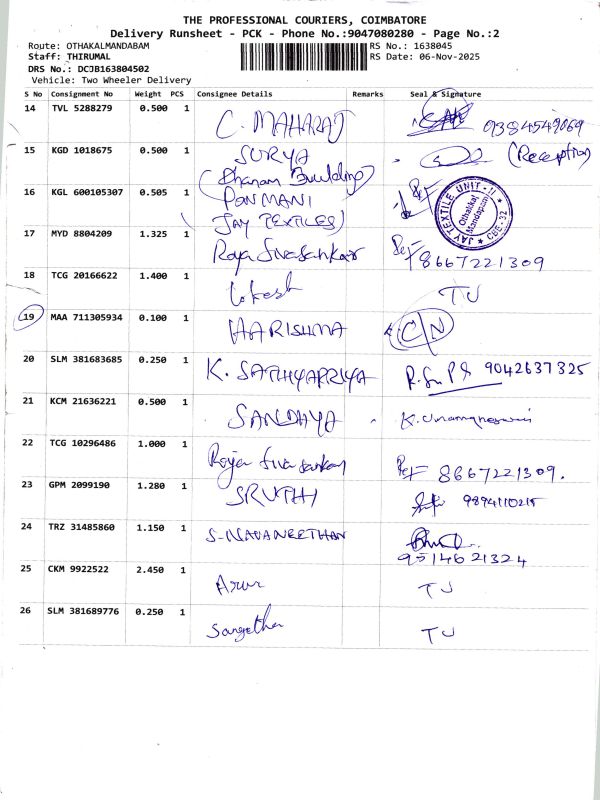 THE PROFESSIONAL COURIERS, COIMBATORE
Delivery Runsheet - PCK - Phone No.:9047080280 - Page No.:2
Route: OTHAKALMANDABAM RS No.: 1638045
Staff: THIRUMAL RS Date: 06-Nov-2025
DRS No.: DCJB163804502
Vehicle: Two Wheeler Delivery
S No Consignment No Weight PCS Consignee Details Remarks Seal & Signature
14 TVL 5288279 0.500 1 C. MAHARAJ 9384549069
15 KGD 1018675 0.500 1 SURYA (Reception)
(Dhanam Buulding)
16 KGL 600105307 0.505 1 PONMANI
JAY TEXTILE UNIT-II Othakkal Mandapam CBE-32
(JAY TEXTILES)
17 MYD 8804209 1.325 1 Raja Sivasankar Ref 8667221309
18 TCG 20166622 1.400 1 Lokesh TU
19 MAA 711305934 0.100 1 HARISHMA C/N
20 SLM 381683685 0.250 1 K. SATHYAPRIYA 9042637325
21 KCM 21636221 0.500 1 SANDHYA K. Umamaheswari
22 TCG 10296486 1.000 1 Raja Sivasankar Ref 8667221309.
23 GPM 2099190 1.280 1 SRUTHI 9894110215
24 TRZ 31485860 1.150 1 S-NAVANEETHAN
9514621324
25 CKM 9922522 2.450 1 Arun TU
26 SLM 381689776 0.250 1 Sangetha TU